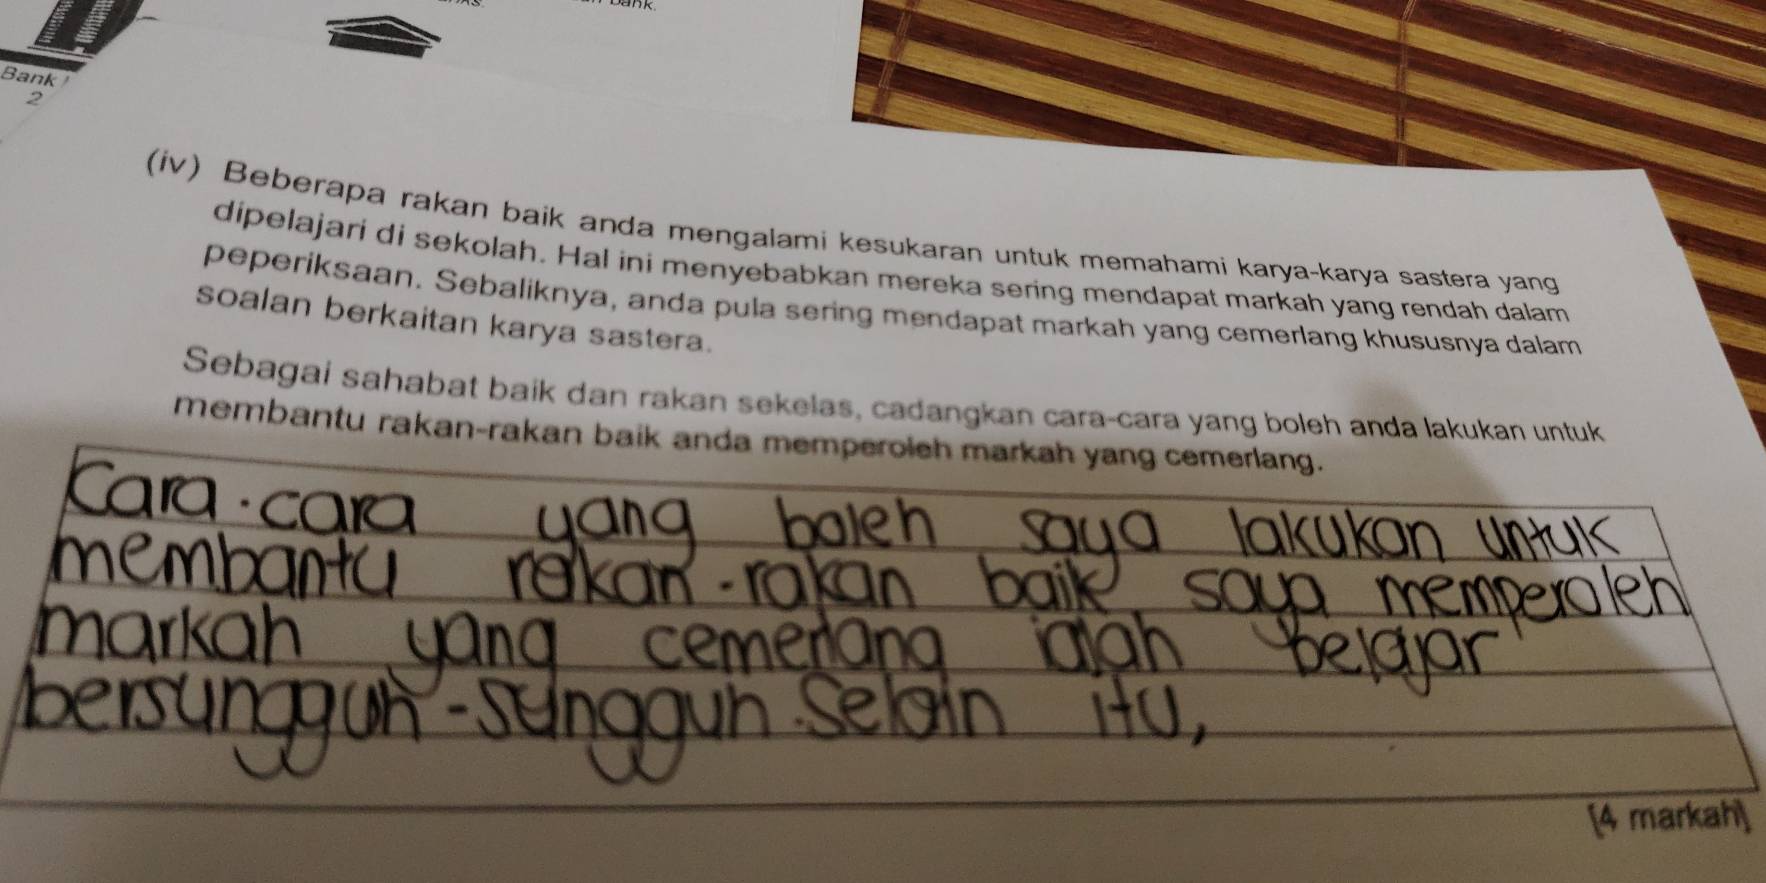 Bank
2
(iv) Beberapa rakan baik anda mengalami kesukaran untuk memahami karya-karya sastera yang
dipelajari di sekolah. Hal ini menyebabkan mereka sering mendapat markah yang rendah dalam
peperiksaan. Sebaliknya, anda pula sering mendapat markah yang cemerlang khususnya dalam
soalan berkaitan karya sastera.
Sebagai sahabat baik dan rakan sekelas, cadangkan cara-cara yang boleh anda lakukan untuk
membantu rakan-rakan baik anda memperoleh markah yang cemerlang.
Cara-cara yang boleh saya lakukan untuk
membantu rakan-rakan baik saya memperoleh
markah yang cemerlang ialah belajar
bersungguh-sungguh. Selain itu,
[4 markah]